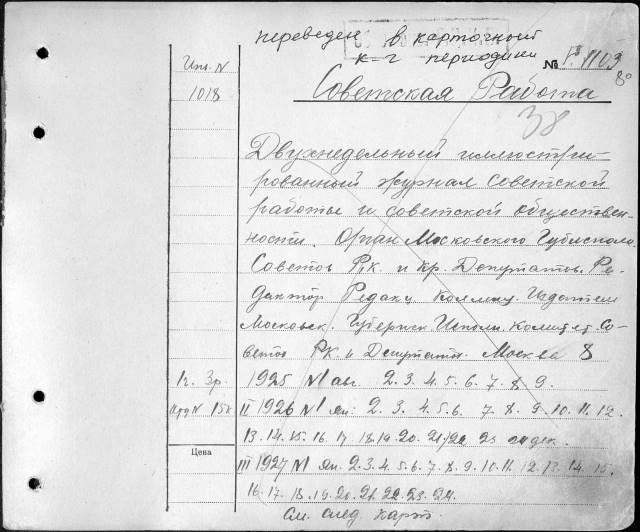 переведен в карточный
к-г периодики
№ Р. 1103
8°
Инв. N
1018
Советская Работа
38
Двухнедельный иллюстри-
рованный журнал советской
работы и советской обществен-
ности. Орган Московского Губисполк.
Советов Р.К. и Кр. Депутатов. Ре-
дактор Редакц. Коллиц. Издатели
Московск. Губерни Исполн. Комитет. Со-
ветов РК. и Депутатт. Москва 8
1925 N 1 авг. 2. 3. 4. 5. 6. 7. 8. 9.
ц. 3р.
II 1926 N 1 Ян. 2. 3. 4. 5. 6. 7. 8. 9. 10. 11. 12.
отд N 15к
13. 14. 15. 16. 17. 18. 19. 20. 21/22 23 дек.
Цена
III 1927 N 1 Ян. 2. 3. 4. 5. 6. 7. 8. 9. 10. 11. 12. 13. 14. 15.
16. 17. 18. 19. 20. 21. 22. 23. 24.
См. след. карт.